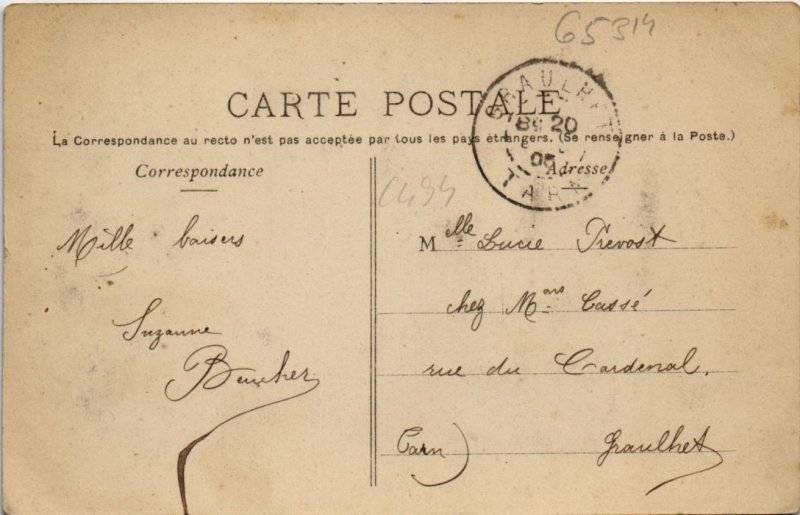 65314
CARTE POSTALE
La Correspondance au recto n'est pas acceptée par tous les pays étrangers. (Se renseigner à la Poste.)
GRAULHET
20
TARN
Correspondance
Adresse
Mille baisers
Suzanne
Beucher
Mlle Lucie Prevost
chez Mons Cassé
rue du Cardenal.
Tarn) Graulhet